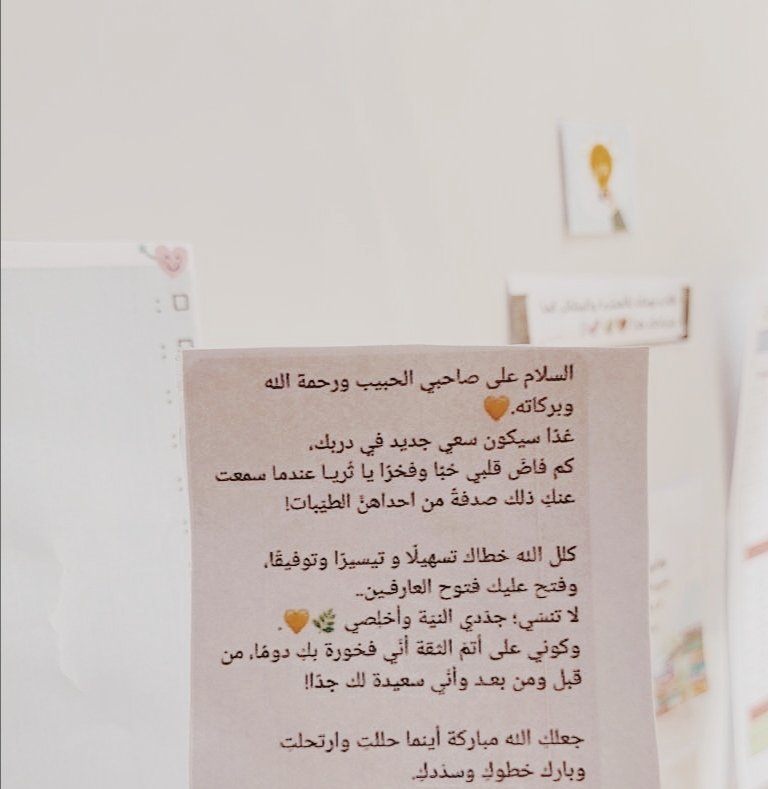 السلام على صاحبي الحبيب ورحمة الله
وبركاته.🧡
غدًا سيكون سعي جديد في دربك،
كم فاضَ قلبي حُبًا وفخرًا يا ثُريـا عندما سمعت
عنكِ ذلك صدفةً من احداهنَّ الطيّبات!
كلل الله خطاك تسهيلًا و تيسيرًا وتوفيقًا،
وفتح عليك فتوح العارفـين..
لا تنسَي؛ جدّدي النيّة وأخلِصي 🌿🧡.
وكوني على أتمّ الثقة أنّي فخورة بكِ دومًا، من
قبل ومن بعـد وأنّي سعيدة لك جدًا!
جعلكِ الله مباركة أينما حللتِ وارتحلتِ
وبارك خطوكِ وسددكِ.